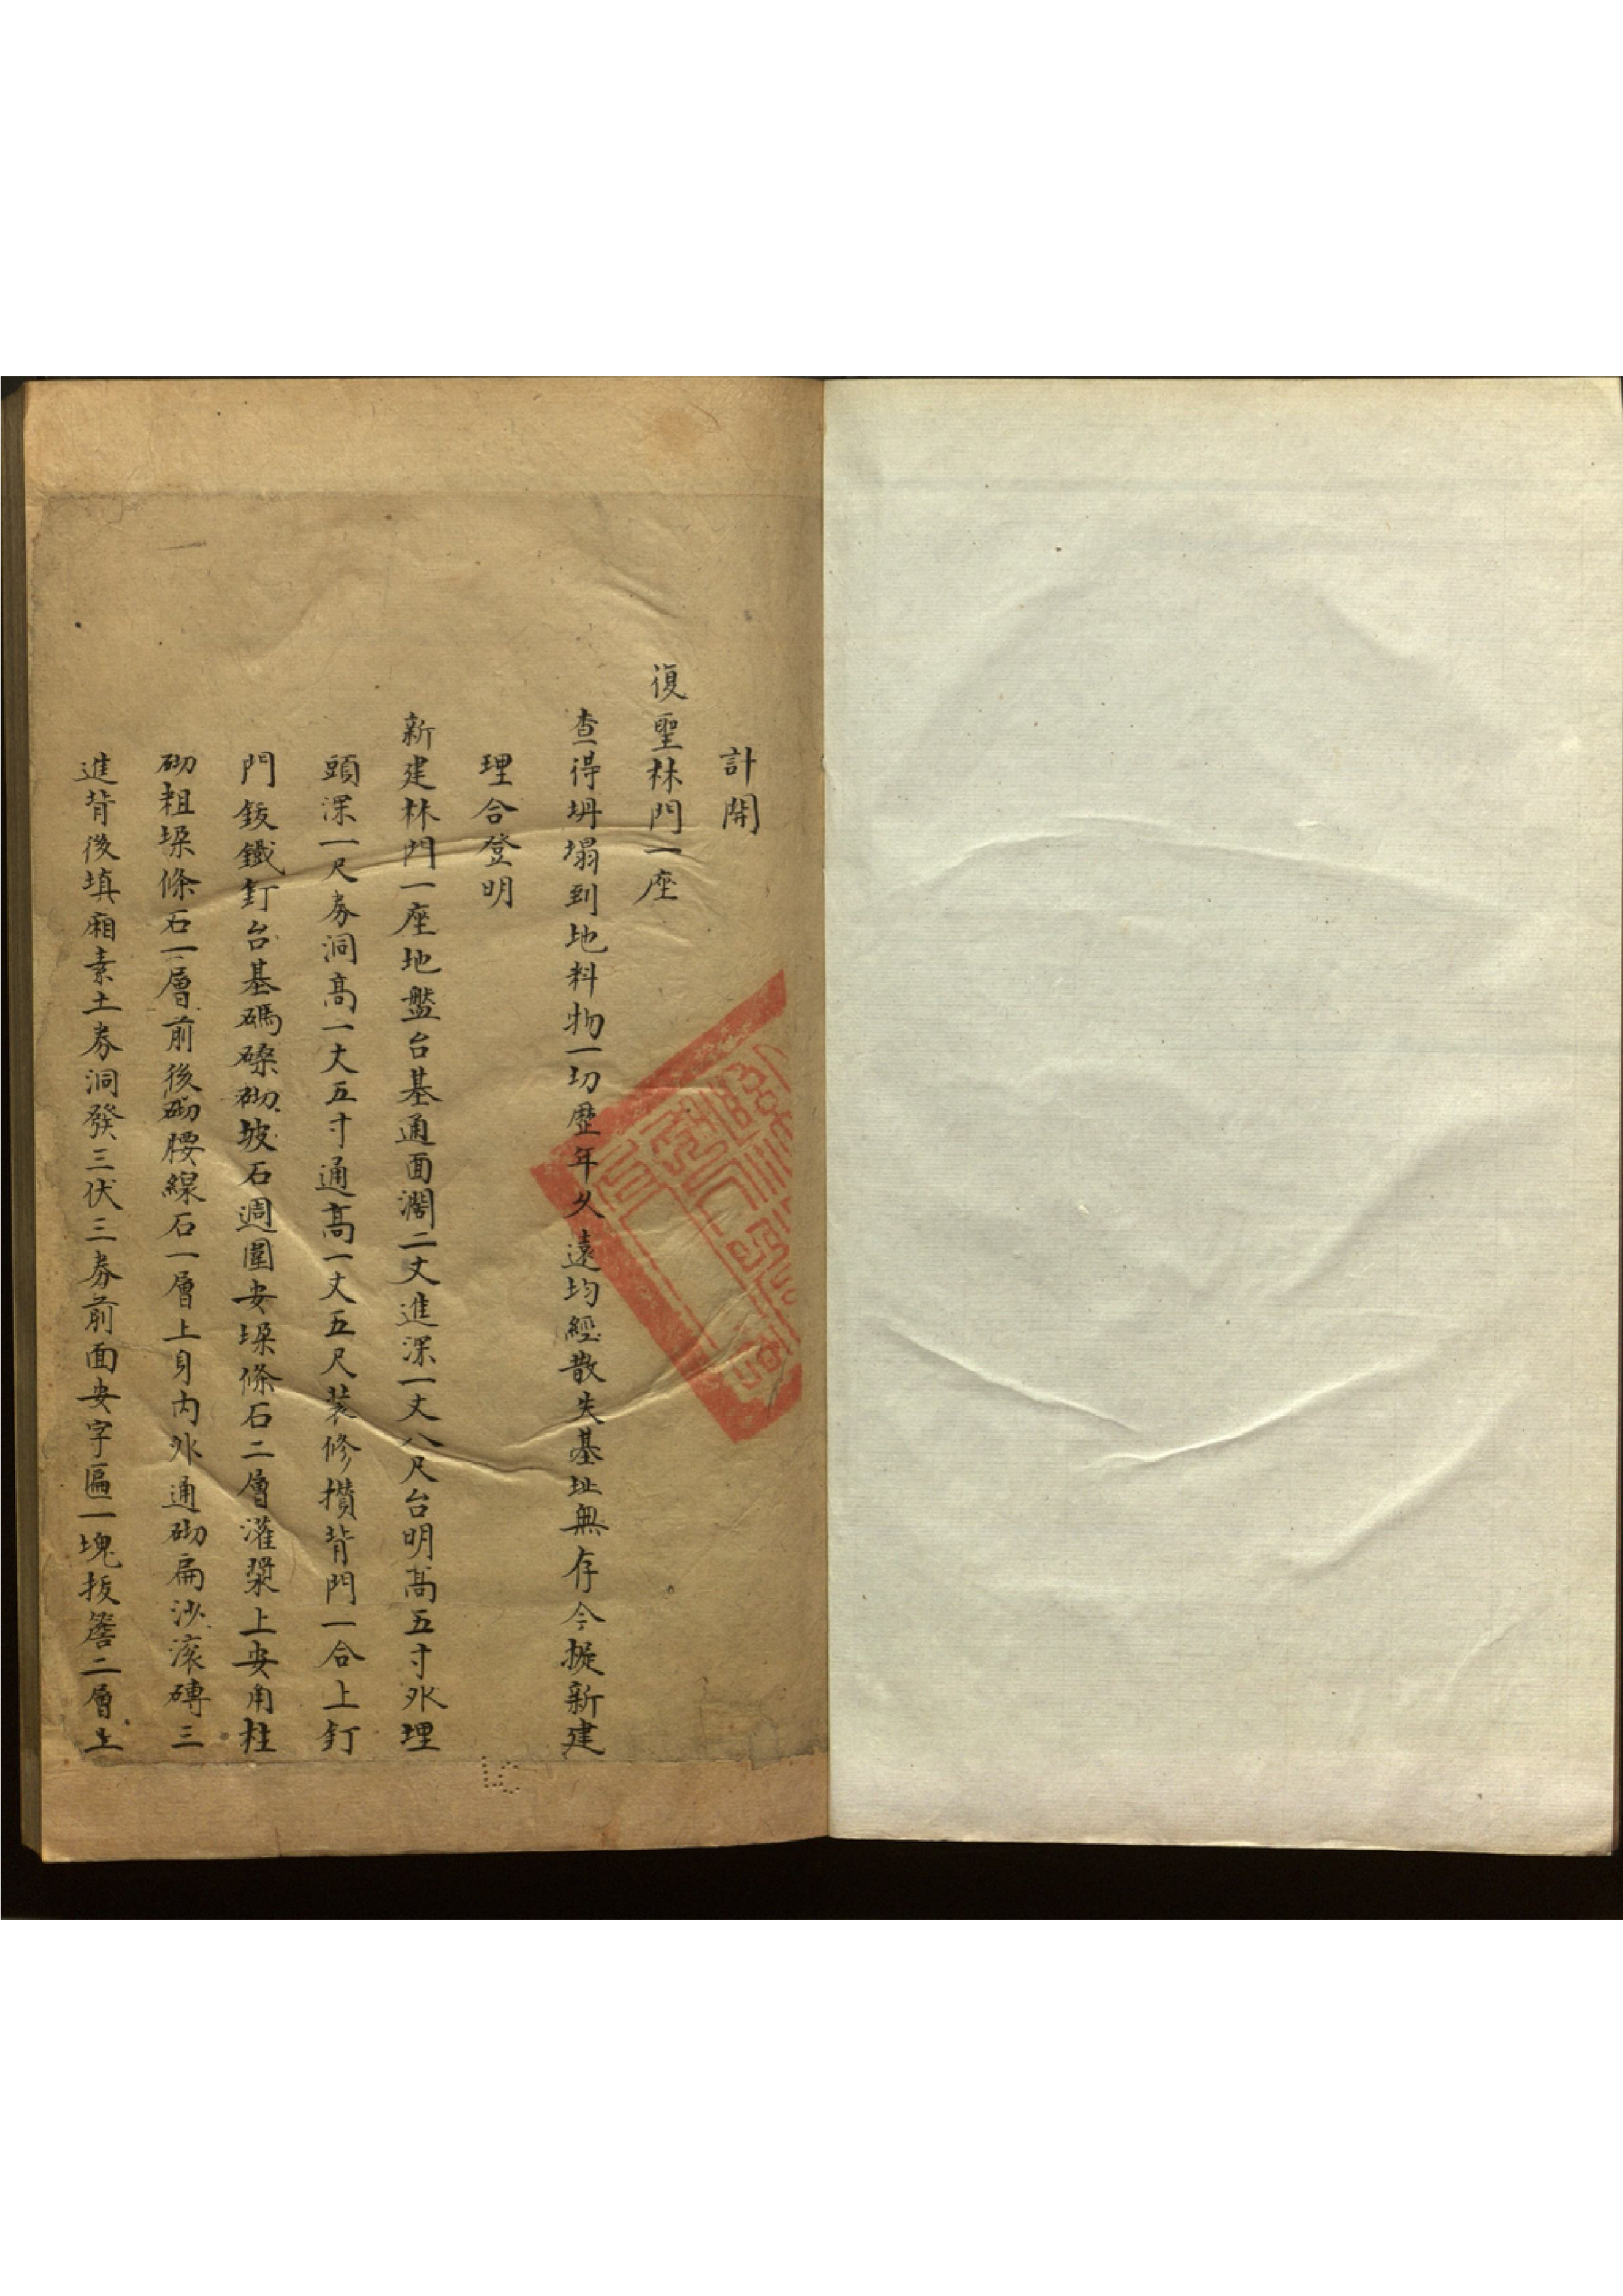 計開
復聖林門一座
查得坍塌到地料物一切歷年久遠均經散失基址無存今擬新建
理合登明
新建林門一座地盤台基通面濶二丈進深一丈八尺台明高五寸外埋
頭深一尺券洞高一丈五寸通高一丈五尺裝修攢背門一合上釘
門鈸鐵釘台基碼磉砌坡石週圍安垛條石二層灌漿上安角柱
砌粗垛條石一層前後砌腰線石一層上身内外通砌扁沙滚磚三
進背後填廂素土券洞發三伏三券前面安字匾一塊拔簷二層上